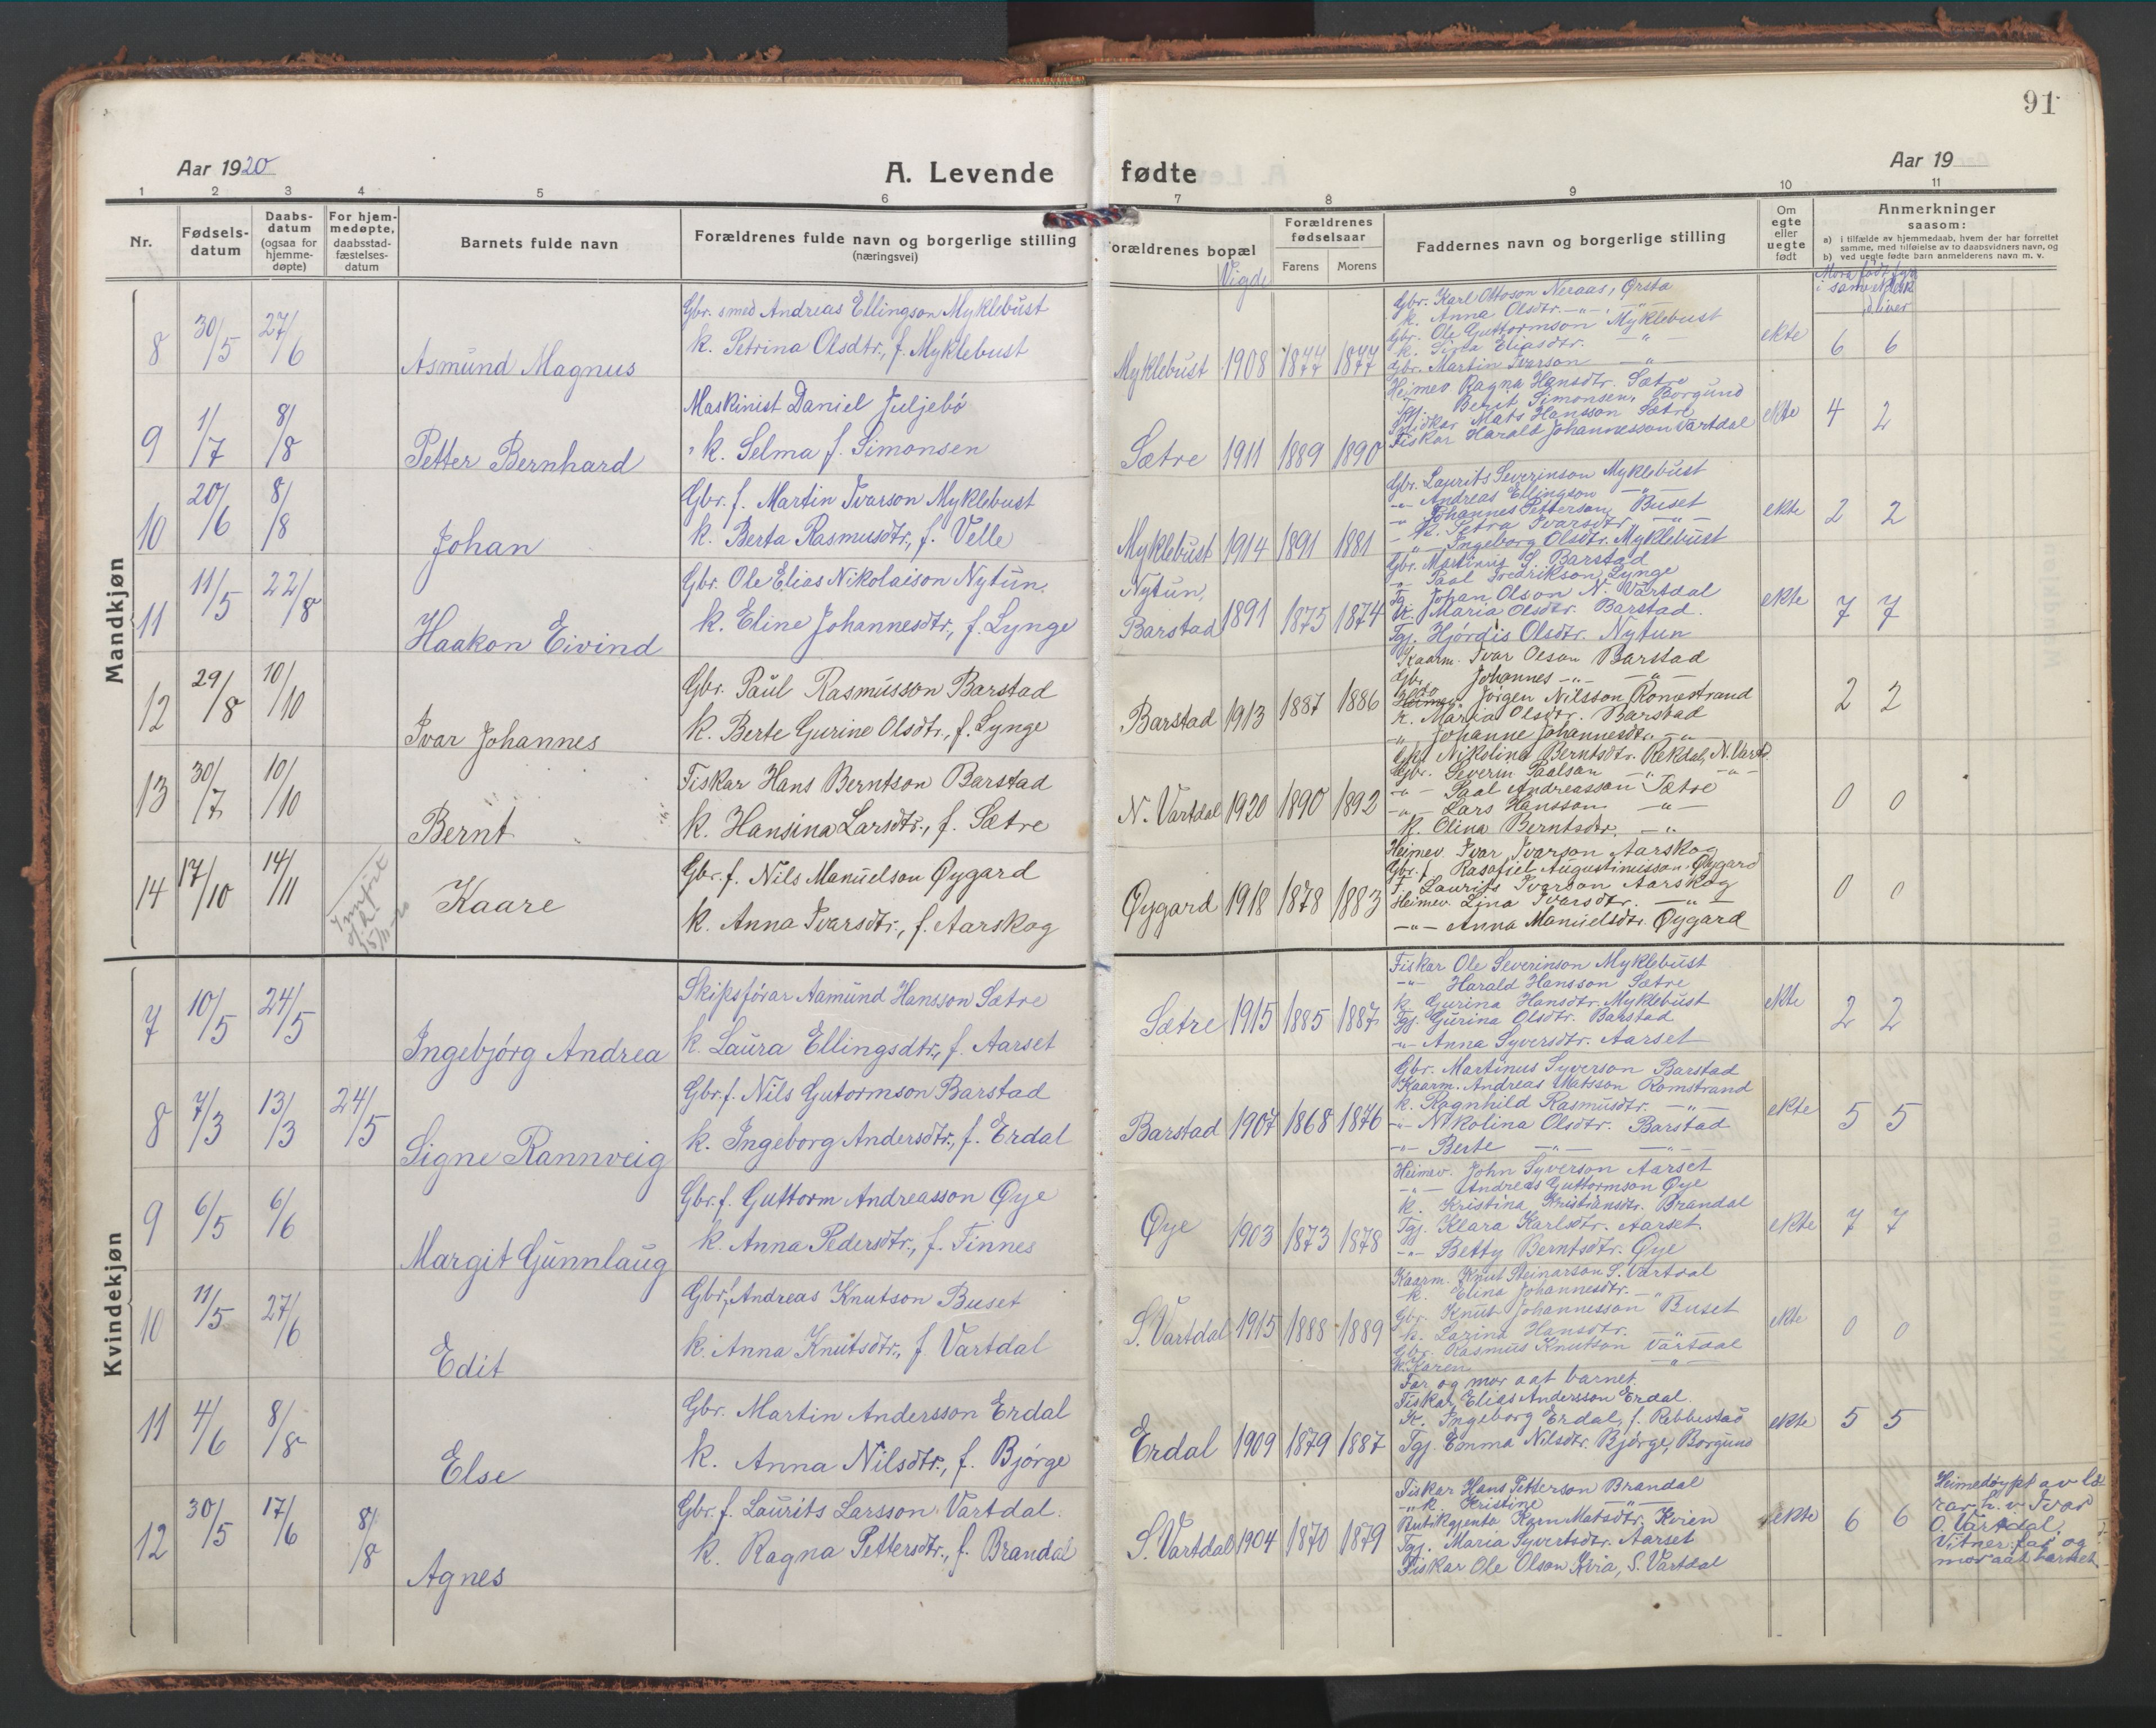 91
Aar 1920
A. Levende fødte
Aar 19
1 2 3 4 5 6 7 8 9 10 11
Nr.
Fødsels-
datum
Daabs-
datum
(ogsaa for
hjemme-
døpte)
For hjem-
medøpte,
daabsstad-
fæstelses-
datum
Barnets fulde navn
Forældrenes fulde navn og borgerlige stilling
(næringsvei)
orældrenes bopæl
Vigde
Forældrenes
fødselsaar
Farens Morens
Faddernes navn og borgerlige stilling
Om
egte
eller
uegte
født
Anmerkninger
saasom:
a) i tilfælde av hjemmedaab, hvem der har forrettet
samme, med tilføielse av to daabsvidners navn, og
b) ved uegte fødte barn anmelderens navn m. v.
Mandkjøn
8 30/5 27/6
Asmund Magnus
Gbr. smed Andreas Ellingson Myklebust
k. Petrina Olsdtr., f. Myklebust
Myklebust 1908 1877 1877
Gbr. Karl Ottoson Neraas, Ørsta
k. Anna Olsdtr. -"-
Gbr. Ole Guttormson Myklebust
k. Sina Eliasdtr. -"-
Gbr. Martin Ivarson -"-
ekte 6 6
9 1/7 8/8
Petter Bernhard
Maskinist Daniel Juljebø
k. Selma f. Simonsen
Sætre 1911 1889 1890
Heimev Ragna Hansdtr. Sætre
Tgj. Berit Simonsen, Borgund
Mats Hansson Sætre
Fiskar Harald Johannesson Vartdal
ekte 4 2
10 20/6 8/8
Johan
Gbr. f. Martin Ivarson Myklebust
k. Berta Rasmusdtr., f. Velle
Myklebust 1914 1891 1881
Gbr. Laurits Severinson Myklebust
-"- Andreas Ellingson -"-
-"- Johannes Petterson Buset
k. Petra Ivarsdtr. -"-
-"- Ingeborg Olsdtr. Myklebust
ekte 2 2
11 11/5 22/8
Haakon Eivind
Gbr. Ole Elias Nikolaison Nytun.
k. Eline Johannesdtr., f. Lynge
Nytun,
Barstad 1891 1875 1874
Gbr. Martinus S. Barstad
-"- Paal Fredrikson Lynge
Tg. Johan Olson N. Vartdal
k. Maria Olsdtr. Barstad.
Tgj. Hjørdis Olsdtr. Nytun
ekte 7 7
12 29/8 10/10
Ivar Johannes
Gbr. Paul Rasmusson Barstad
k. Berte Gurine Olsdtr., f. Lynge
Barstad 1913 1887 1886
Kaarm. Ivar Olson Barstad
Gbr. Johannes -"- -"-
Jørgen Nilsson Romestrand
k. Maria Olsdtr. Barstad
" Johanne Johannesdtr. -"-
2 2
13 30/7 10/10
Bernt
Fiskar Hans Berntson Barstad
k. Hansina Larsdtr., f. Sætre
N. Vartdal 1920 1890 1892
Nikolina Berntsdtr. Rekdal, N. Vartd.
Gbr. Severin Paalson -"- -"-
-"- Paal Andreasson Sætre
-"- Lars Hansson -"-
k. Olina Berntsdtr. -"-
0 0
14 17/10 14/11
Innført
15/11-20
Kaare
Gbr. f. Nils Manuelson Øygard
k. Anna Ivarsdtr., f. Aarskog
Øygard 1918 1878 1883
Heimev. Ivar Ivarson Aarskog
Gbr. f. Augustinusson Øygard
F. Laurits Ivarson Aarskog
Heimev. Lina Ivarsdtr. -"-
-"- Anna Manuelsdtr. Øygard
0 0
Kvindekjøn
7 10/5 24/5
Ingebjørg Andrea
Skipsførar Aamund Hansson Sætre
k. Laura Ellingsdtr., f. Aarset
Sætre 1915 1885 1887
Fiskar Ole Severinson Myklebust
-"- Harald Hansson Sætre
k. Gurina Hansdtr. Myklebust
Tgj. Gurina Olsdtr. Barstad
-"- Anna Syversdtr. Aarset
ekte 2 2
8 7/3 13/3 24/5
Signe Rannveig
Gbr. f. Nils Gutormson Barstad
k. Ingeborg Andersdtr., f. Erdal
Barstad 1907 1868 1876
Gbr. Martinus Syverson Barstad
Kaarm. Andreas Matsson Romstrand
k. Ragnhild Rasmusdtr. -"-
-"- Nikolina Olsdtr. Barstad
-"- Berte -"- -"-
ekte 5 5
9 6/5 6/6
Margit Gunnlaug
Gbr. f. Guttorm Andreasson Øye
k. Anna Pedersdtr., f. Finnes
Øye 1903 1873 1878
Heimev. John Syverson Aarset
-"- Andreas Guttormson Øye
k. Kristina Kristiansdtr. Brandal
Tgj. Klara Karlsdtr. Aarset
-"- Betty Berntsdtr. Øye
ekte 7 7
10 11/5 27/6
Edit
Gbr. f. Andreas Knutson Buset
k. Anna Knutsdtr., f. Vartdal
S. Vartdal 1915 1888 1889
Kaarm. Knut Steinarson S. Vartdal
k. Elina Johannesdtr. -"-
Gbr. Knut Johannesson Buset
k. Larina Hansdtr. -"-
Gbr. Rasmus Knutson Vartdal
k. Karen -"-
ekte 0 0
11 4/6 8/8
Else
Gbr. Martin Andersson Erdal
k. Anna Nilsdtr., f. Bjørge
Erdal 1909 1879 1887
Far og mor aat barnet.
Fiskar Elias Andersson Erdal
k. Ingeborg Erdal, f. Ribbestad
Tgj. Emma Nilsdtr. Bjørge, Borgund
ekte 5 5
12 30/5 17/6 8/8
Agnes
Gbr. f. Laurits Larsson Vartdal.
k. Ragna Pettersdtr., f. Brandal
S. Vartdal 1904 1870 1879
Fiskar Hans Petterson Brandal
-"- k. Kristine -"-
Butikgjenta Karn Matsdtr. Kvien
Tgj. Maria Syvertsdtr. Aarset
Fiskar Ole Olson Kvia, S. Vartdal
ekte 6 6
Heimedøypt av læ-
rar h. v. Ivar
O. Vartdal,
Vitner: far og
mor aat barnet